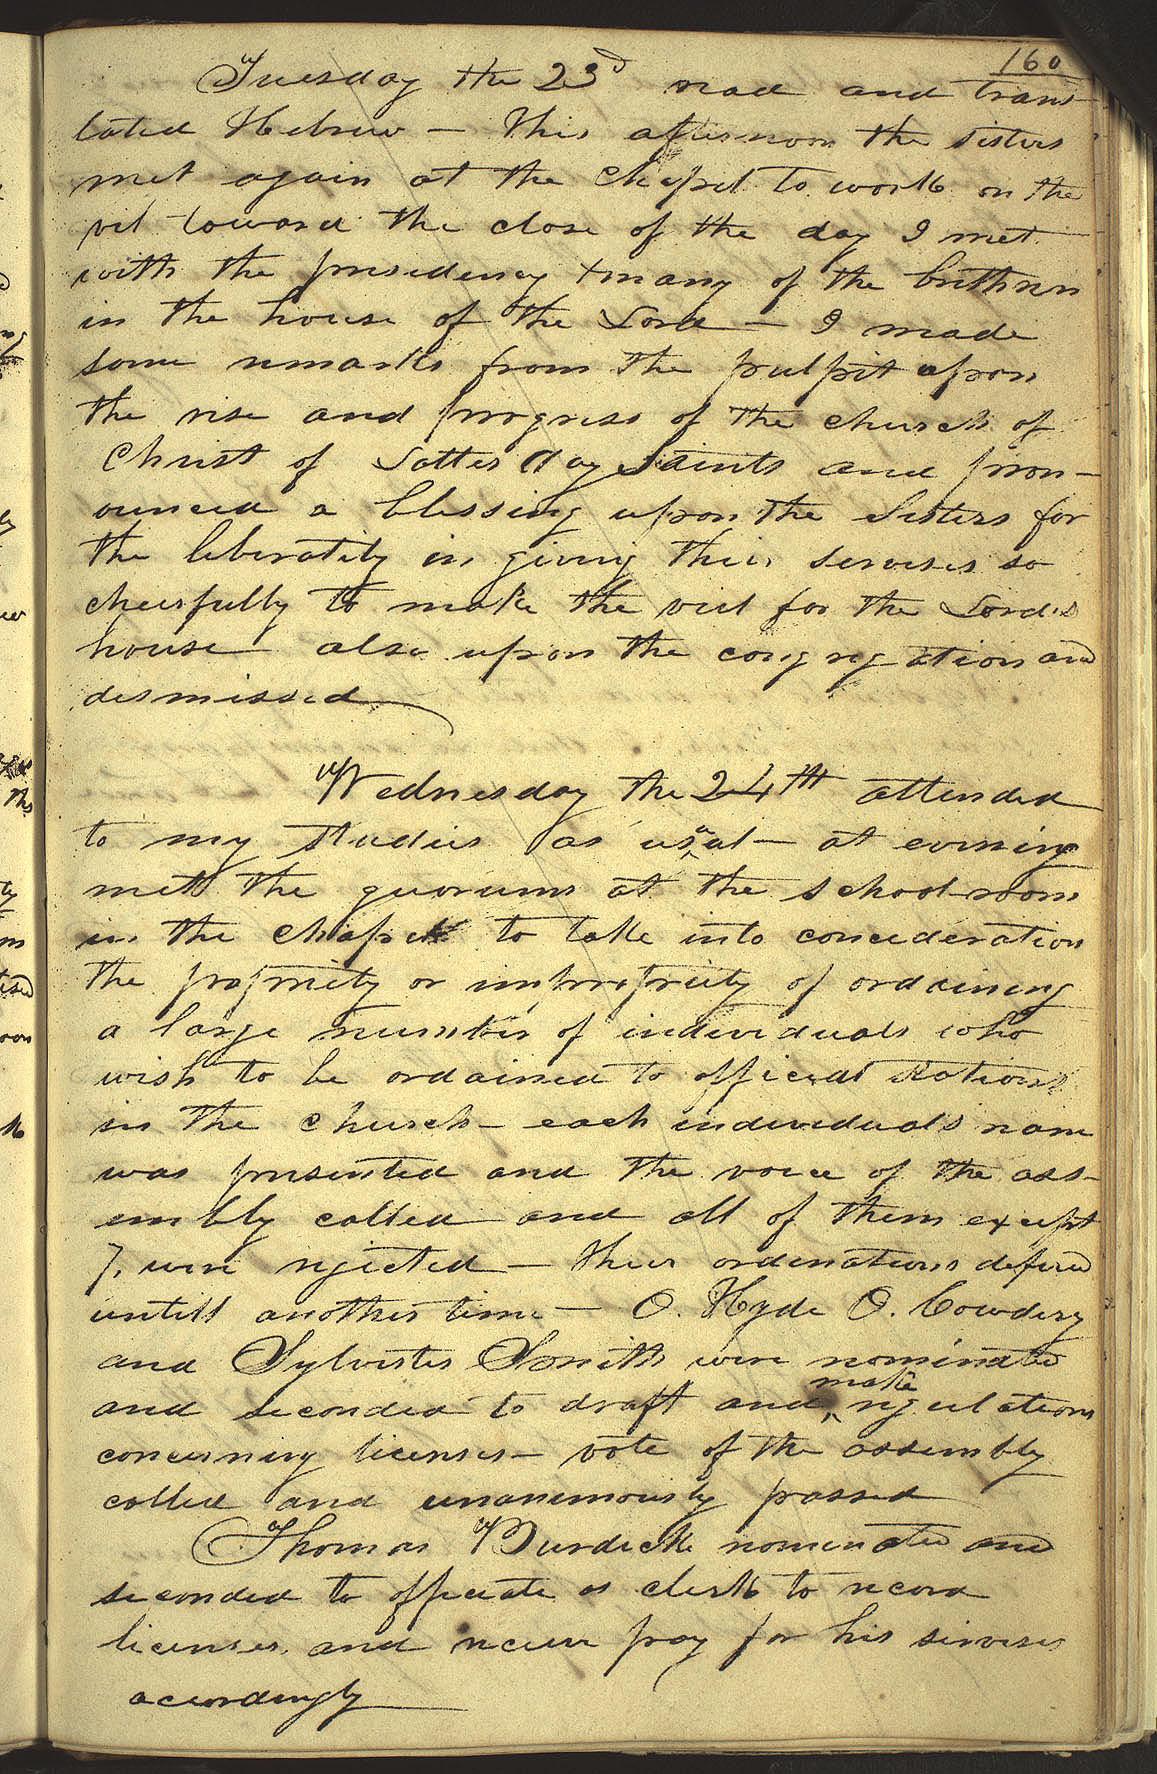 160
Tuesday the 23d read and trans-
lated Hebrew — This afternoon the sisters
met again at the Chapel to work on the
vil toward the close of the day I met
with the presidency & many of the brethren
in the house of the Lord — I made
some remarks from the pulpit upon
the rise and progress of the church of
Christ of Latter day Saints and pron-
ounced a blessing upon the Sisters for
the liberality in giving their servises so
cheerfully to make the veil for the Lord's
house also upon the congregation and
dismissed
Wednesday the 24th attended
to my studies as usual — at evening
met the quorums at the school-room
in the chapel to take into concideration
the propriety or impropriety of ordaining
a large number of individuals who
wish to be ordained to official stations
in the church — each individuals name
was presented and the voice of the ass-
embly called and all of them except
7, were rejected — their ordinations defered
untill another time — O. Hyde O. Cowdery
and Sylvester Smith were nominated
and seconded to draft and make regulations
concerning licenses — vote of the assembly
called and unanimously passed
Thomas Burdick nominated and
seconded to officiate as clerk to record
licenses, and receive pay for his servises
acordingly